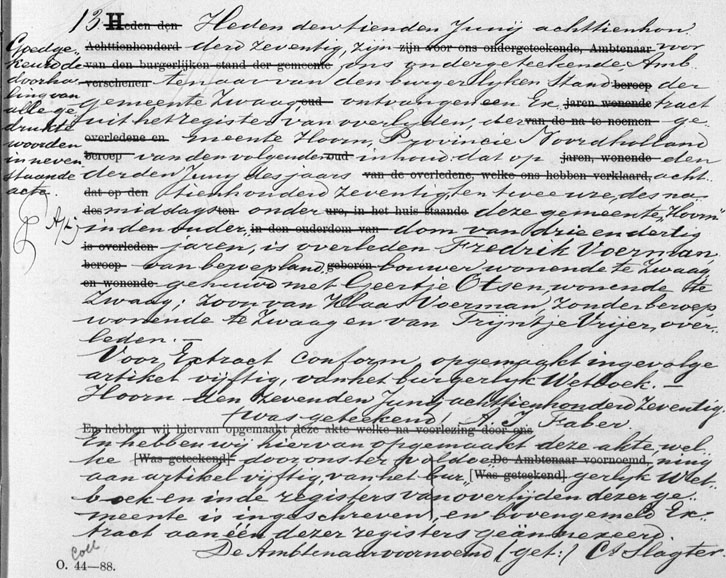 13 Heden den Heden den tienden Junij achttienhon
Goedge- Achttienhonderd derd zeventig, zijn zijn voor ons ondergeteekende, Ambtenaar voor
keurd de van den burgerlijken stand der gemeente ons ondergeteekende Amb
doorha verschenen tenaar van den burgerlyken Stand beroep der
ling van gemeente Zwaag, oud ontvangen een Ex jaren wonende tract
alle ge uit het register van overlyden, der van de na te noemen ge
drukte overledene en meente Hoorn, Provincie Noordholland
woorden beroep van den volgenden oud inhoud dat op jaren, wonende den
in neven derden Juny des jaars van de overledene, welke ons hebben verklaard, acht
staande dat op den tienhonderd zeventig, ten twee ure, des na
acte. des middags ten onder ure, in het huis staande deze gemeente, "Hoorn"
in den ouder in den ouderdom van dom van drie en dertig
is overleden jaren, is overleden Fredrik Voerman,
beroep van beroep land geboren bouwer wonende te Zwaag
en wonende gehuwd met Geertje Otsen, wonende te
Zwaag; zoon van Klaas Voerman, zonder beroep,
wonende te Zwaag en van Trijntje Vrijer, over-
leden. —
Voor Extract Conform, opgemaakt ingevolge
artikel vijftig, van het burgerlyk Wetboek. —
Hoorn den zevenden Juny achttienhonderd zeventig.
(was geteekend) A. J. Faber.
En hebben wij hiervan opgemaakt deze akte welke na voorlezing door ons
En hebben wij hiervan opgemaakt deze akte, wel-
ke [Was geteekend] door ons ter voldoe De Ambtenaar voornoemd, ning
aan artikel vijftig, van het bur [Was geteekend] gerlyk Wet-
boek en in de registers van overlijden dezer ge-
meente is ingeschreven, en bovengemeld Ex-
tract aan één dezer registers geännexeerd.
De Ambtenaar voornoemd (get:) C Slagter.
Coll
O. 44—88.